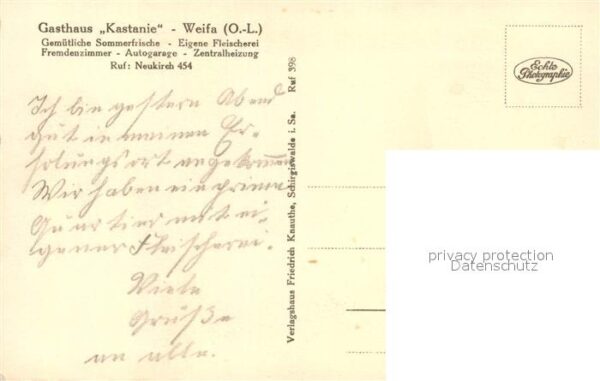 Gasthaus „Kastanie" - Weifa (O.-L.)
Gemütliche Sommerfrische - Eigene Fleischerei
Fremdenzimmer - Autogarage - Zentralheizung
Ruf: Neukirch 454
Ich bin gestern Abend
gut in meinen Er-
holungsort angekommen
Wir haben ein prima
Quartier mit ei-
gener Fleischerei.
Viele
Grüße
an alle.
Verlagshaus Friedrich Knauthe, Schirgiswalde i. Sa. Ruf 398
Echte
Photographie
privacy protection
Datenschutz